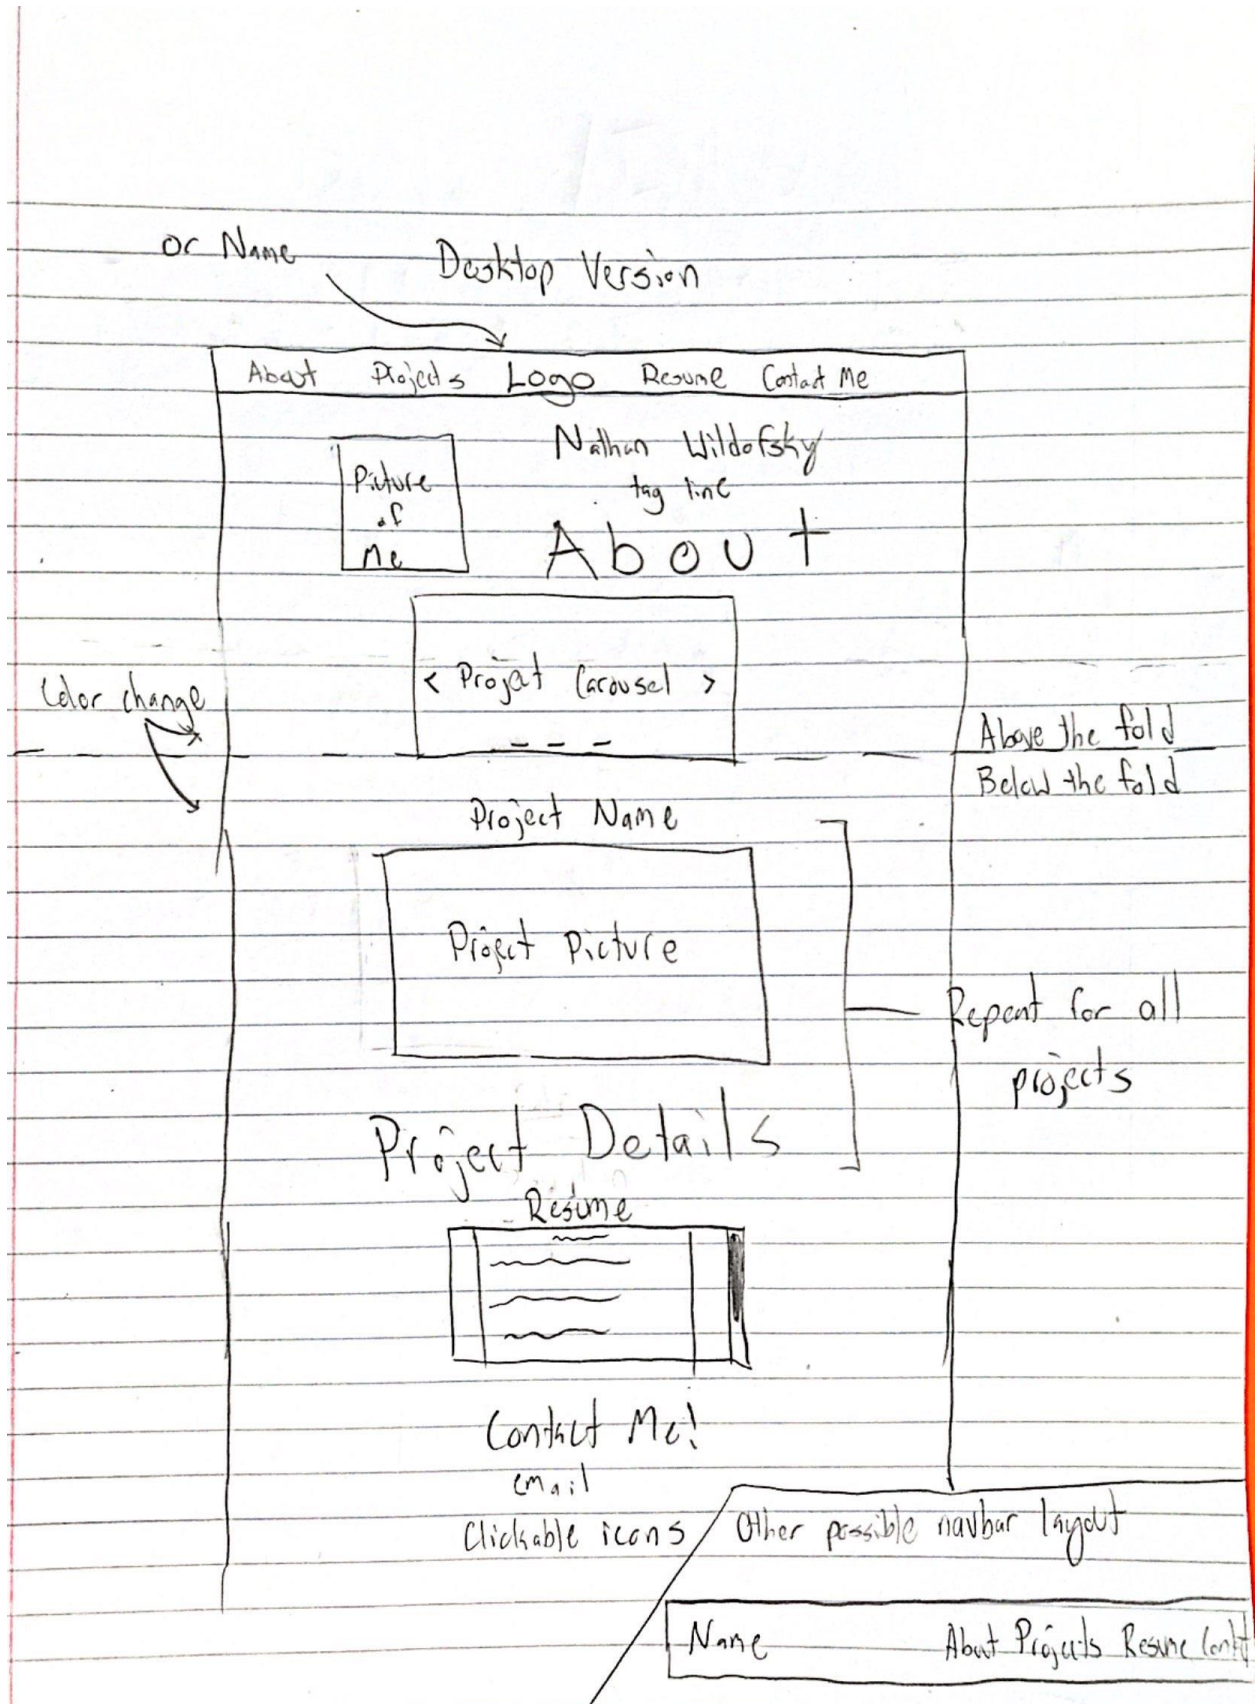 or Name
Desktop Version
About Projects Logo Resume Contact Me
Nathan Wildofsky
tag line
Picture
of
Me
About
< Project Carousel >
Color change
Above the fold
Below the fold
Project Name
Project Picture
Repeat for all
projects
Project Details
Resume
Contact Me!
email
Clickable icons
Other possible navbar layout
Name About Projects Resume Contact